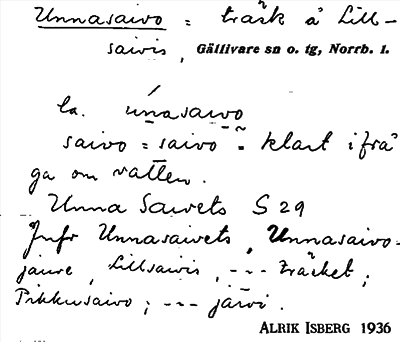 Unnasaivo = träsk å Lill-
saivis, Gällivare sn o. tg, Norrb. l.
la. unasaivo
saivo = saivo = klart ifrå
ga om vatten.
Unna Saivets S 29
Jmfr Unnasaivets, Unnasaivo-
jaure, Lillsaivis, --- träsket;
Pikkusaivo; --- järvi.
ALRIK ISBERG 1936